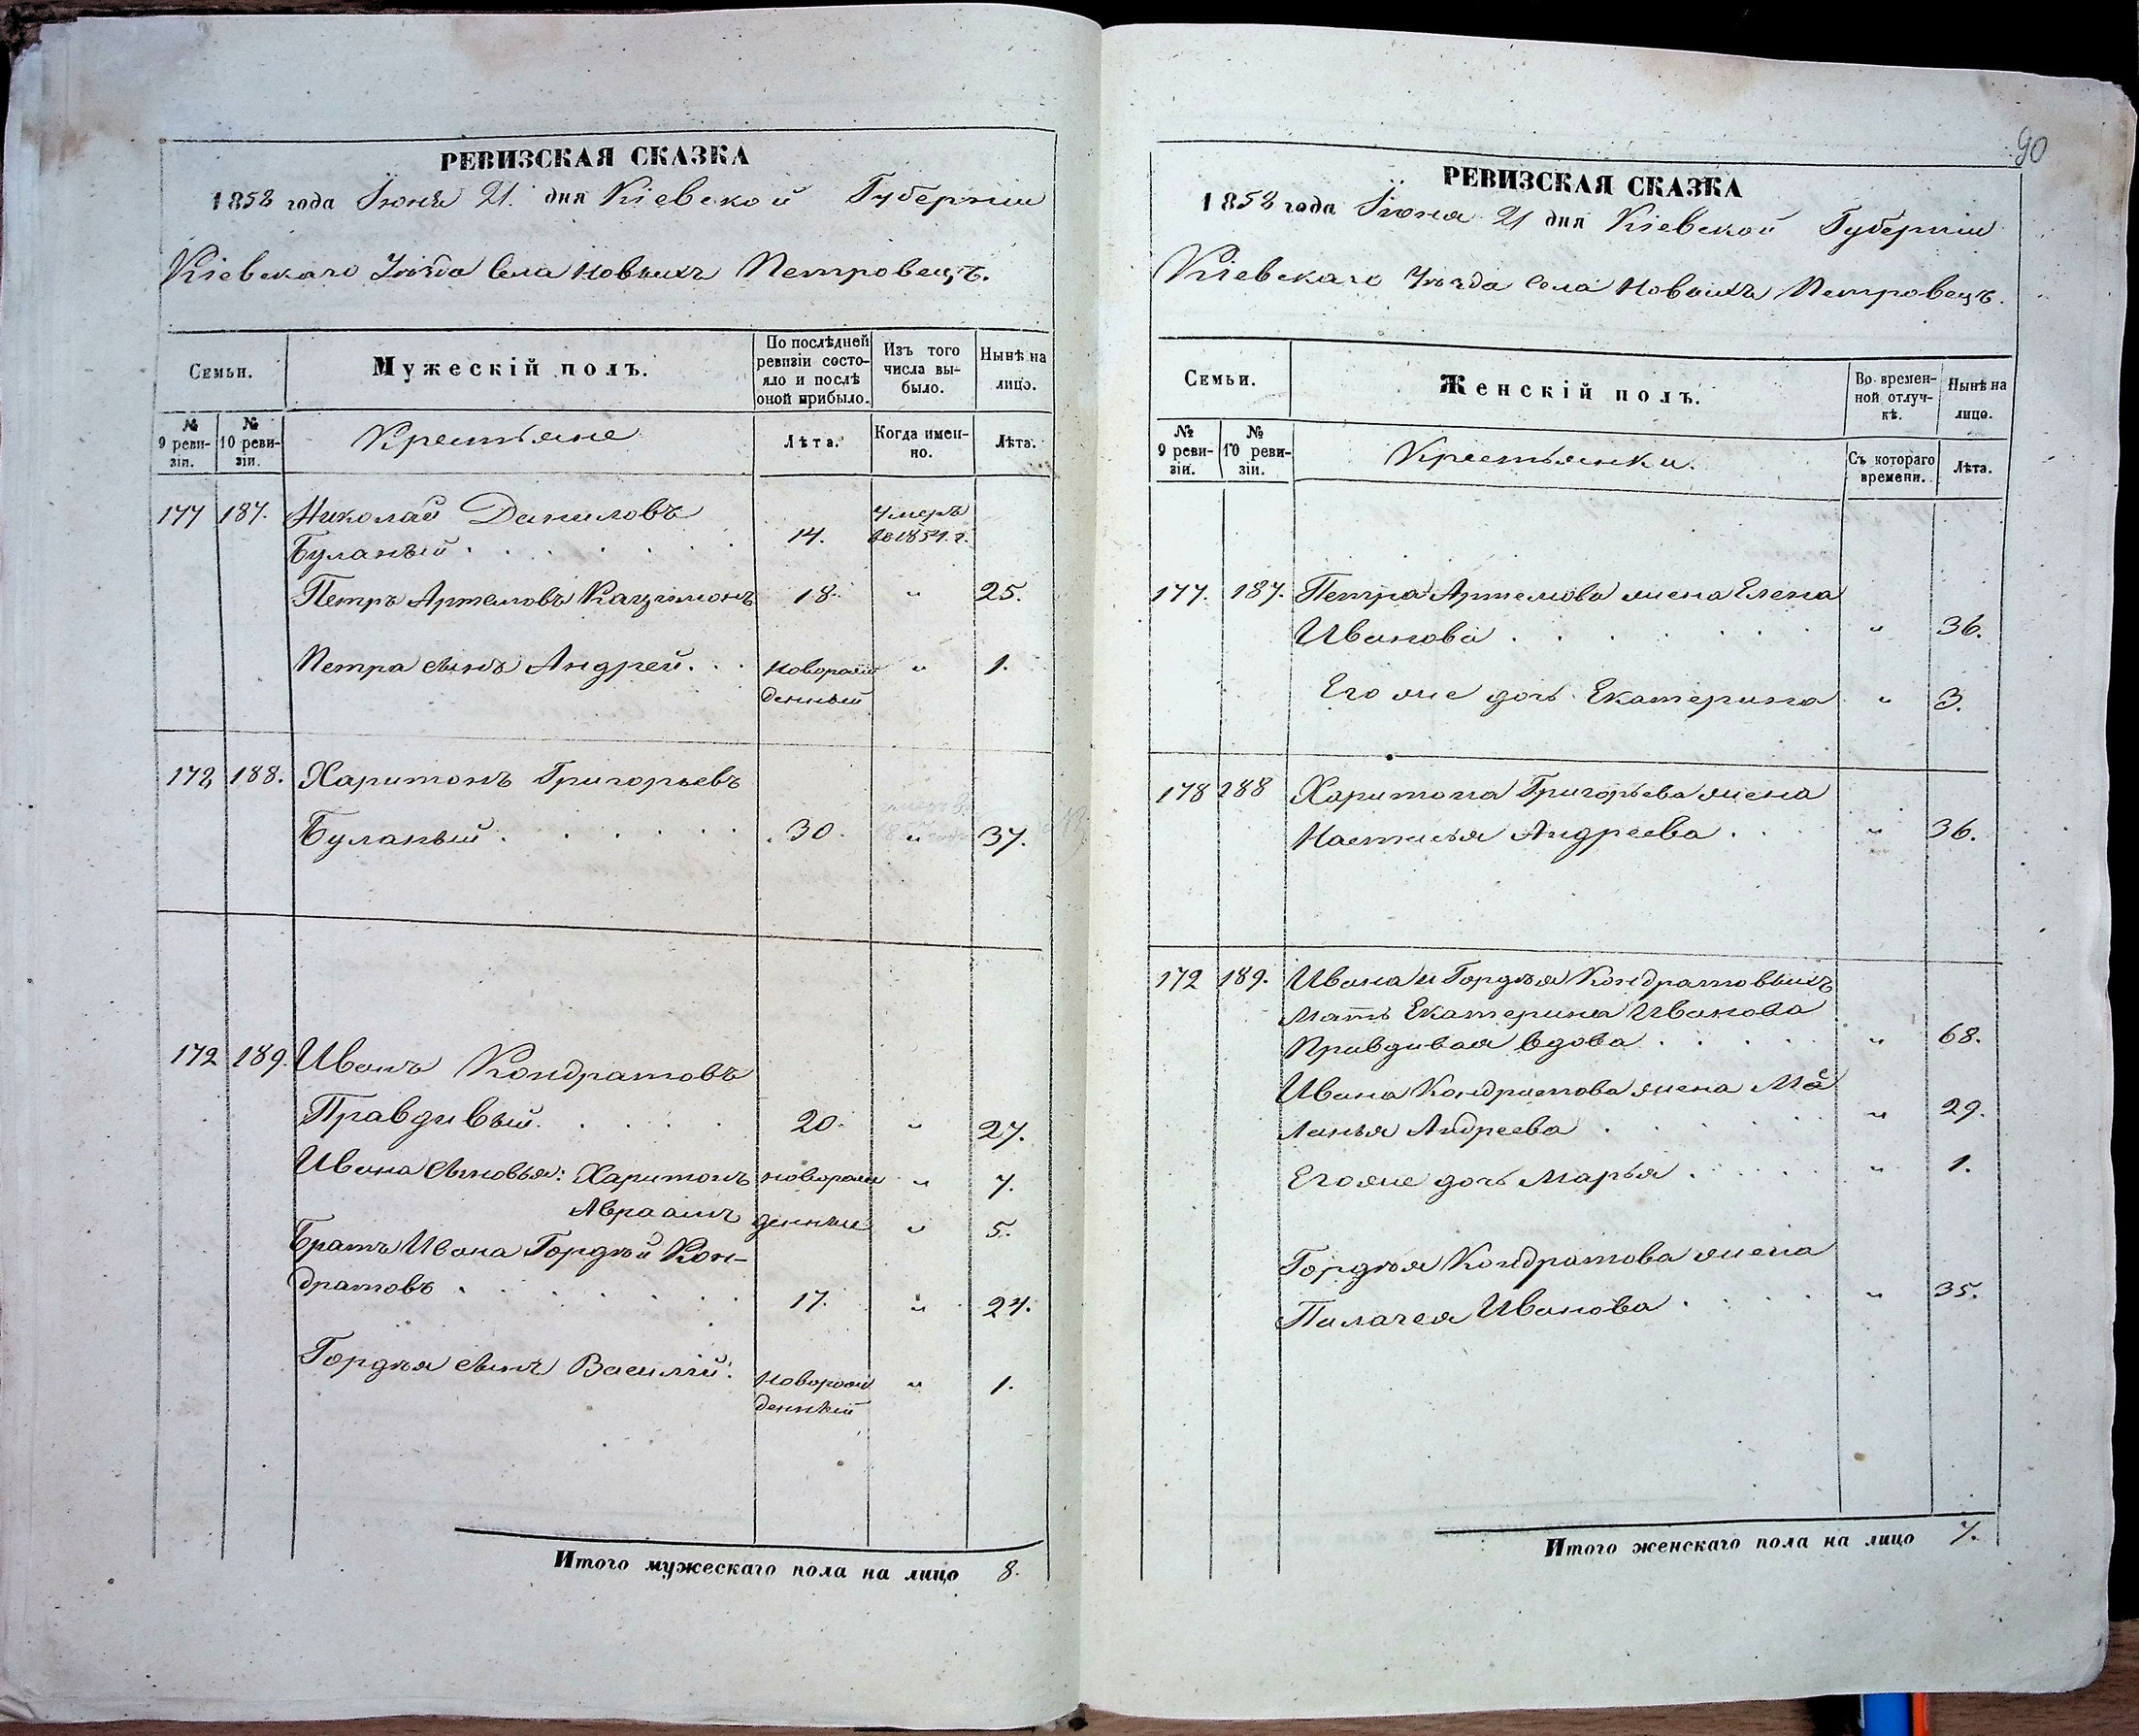 РЕВИЗСКАЯ СКАЗКА
1858 года Іюня 21. дня Кіевской Губерніи
Кіевскаго Уѣзда Села Новыхъ Петровецъ.
Семьи.
Мужескій полъ.
По послѣдней ревизіи состояло и послѣ оной прибыло.
Изъ того числа выбыло.
Нынѣ на лицо.
№ 9 ревизіи.
№ 10 ревизіи.
Крестьяне
Лѣта.
Когда именно.
Лѣта.
177 187. Николай Даниловъ
Буланый 14. Умеръ въ 1854. г.
Петръ Артемовъ 18. " 25.
Петра сынъ Андрей новорож " 1.
денный
178 188. Харитонъ Григорьевъ
Буланый 30. " 37.
172 189. Иванъ Кондратовъ
Правдивый 20. " 27.
Ивана сыновья: Харитонъ новорож " 7.
Авраамъ денные " 5.
Братъ Ивана Гордѣй Кон-
дратовъ 17. " 24.
Гордѣя сынъ Василій. новорож " 1.
денный
Итого мужескаго пола на лицо 8.
90
РЕВИЗСКАЯ СКАЗКА
1858 года Іюня 21 дня Кіевской Губерніи
Кіевскаго Уѣзда Села Новыхъ Петровецъ.
Семьи.
Женскій полъ.
Во временной отлучкѣ.
Нынѣ на лицо.
№ 9 ревизіи.
№ 10 ревизіи.
Крестьянки.
Съ котораго времени.
Лѣта.
177. 187. Петра Артемова жена Елена
Иванова " 36.
Его же дочь Екатерина " 3.
178 188 Харитона Григорьева жена
Настасья Андреева " 36.
172 189. Ивана и Гордѣя Кондратовыхъ
Мать Екатерина Иванова
Правдивая вдова " 68.
Ивана Кондратова жена Ма
ланья Андреева " 29.
Его же дочь Марья " 1.
Гордѣя Кондратова жена
Палагея Иванова " 35.
Итого женскаго пола на лицо 7.